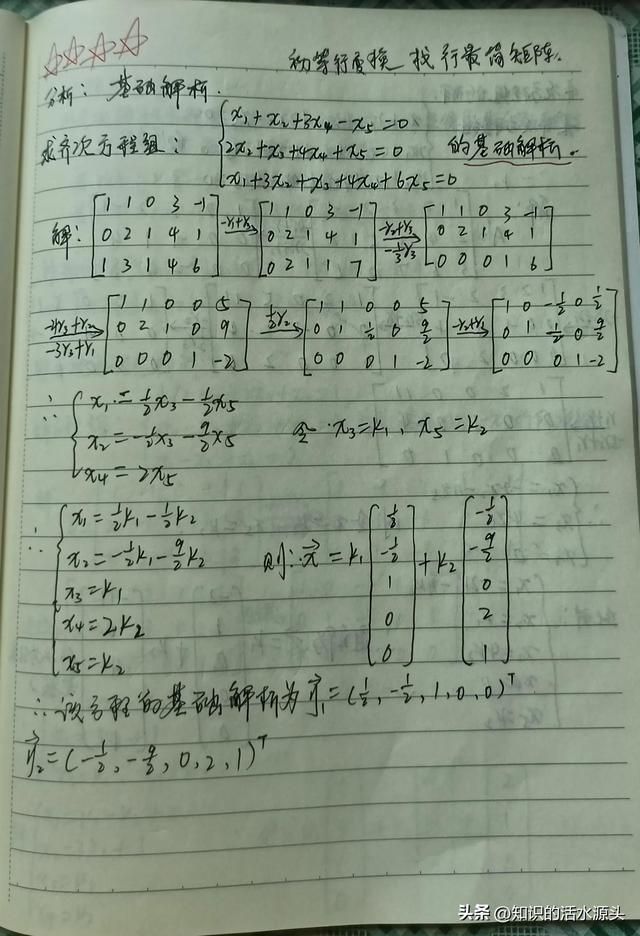 初等行变换 找行最简矩阵.
分析: 基础解析.
求齐次方程组: { x₁+x₂+3x₄-x₅=0
2x₂+x₃+4x₄+x₅=0 的基础解析.
x₁+3x₂+x₃+4x₄+6x₅=0
解: [1 1 0 3 -1; 0 2 1 4 1; 1 3 1 4 6] -r₁+r₃→ [1 1 0 3 -1; 0 2 1 4 1; 0 2 1 1 7] -r₂+r₃ -1/3r₃→ [1 1 0 3 -1; 0 2 1 4 1; 0 0 0 1 6]
-4r₃+r₂ -3r₃+r₁→ [1 1 0 0 5; 0 2 1 0 9; 0 0 0 1 -2] 1/2r₂→ [1 1 0 0 5; 0 1 1/2 0 9/2; 0 0 0 1 -2] → [1 0 -1/2 0 1/2; 0 1 1/2 0 9/2; 0 0 0 1 -2]
∴ { x₁=1/2x₃-1/2x₅
x₂=-1/2x₃-9/2x₅ 令 x₃=k₁, x₅=k₂
x₄=2x₅
∴ { x₁=1/2k₁-1/2k₂
x₂=-1/2k₁-9/2k₂ 则: x⃗=k₁[1/2; -1/2; 1; 0; 0]+k₂[-1/2; -9/2; 0; 2; 1]
x₃=k₁
x₄=2k₂
x₅=k₂
∴该方程的基础解析为 η⃗₁=(1/2, -1/2, 1, 0, 0)ᵀ
η⃗₂=(-1/2, -9/2, 0, 2, 1)ᵀ
头条 @知识的活水源头